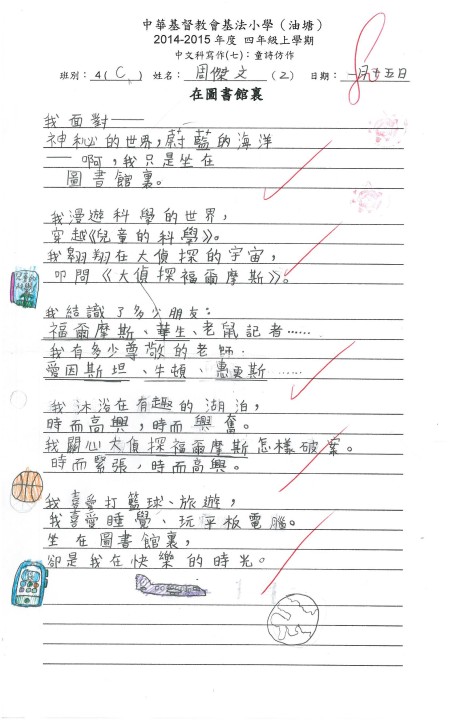 中華基督教會基法小學（油塘）
2014-2015 年度 四年級上學期
中文科寫作(七)：童詩仿作
班別：4( C ) 姓名：周傑文 (2) 日期：一月十五日
在圖書館裏
我面對——
神秘的世界，蔚藍的海洋
——啊，我只是坐在
圖書館裏。
我漫遊科學的世界，
穿越《兒童的科學》。
我翱翔在大偵探的宇宙，
叩問《大偵探福爾摩斯》。
我結識了多少朋友：
福爾摩斯、華生、老鼠記者……
我有多少尊敬的老師．
愛因斯坦、牛頓、惠更斯……
我沐浴在有趣的湖泊，
時而高興，時而興奮。
我關心大偵探福爾摩斯怎樣破案。
時而緊張，時而高興。
我喜愛打籃球、旅遊，
我喜愛睡覺、玩平板電腦。
坐在圖書館裏，
卻是我在快樂的時光。